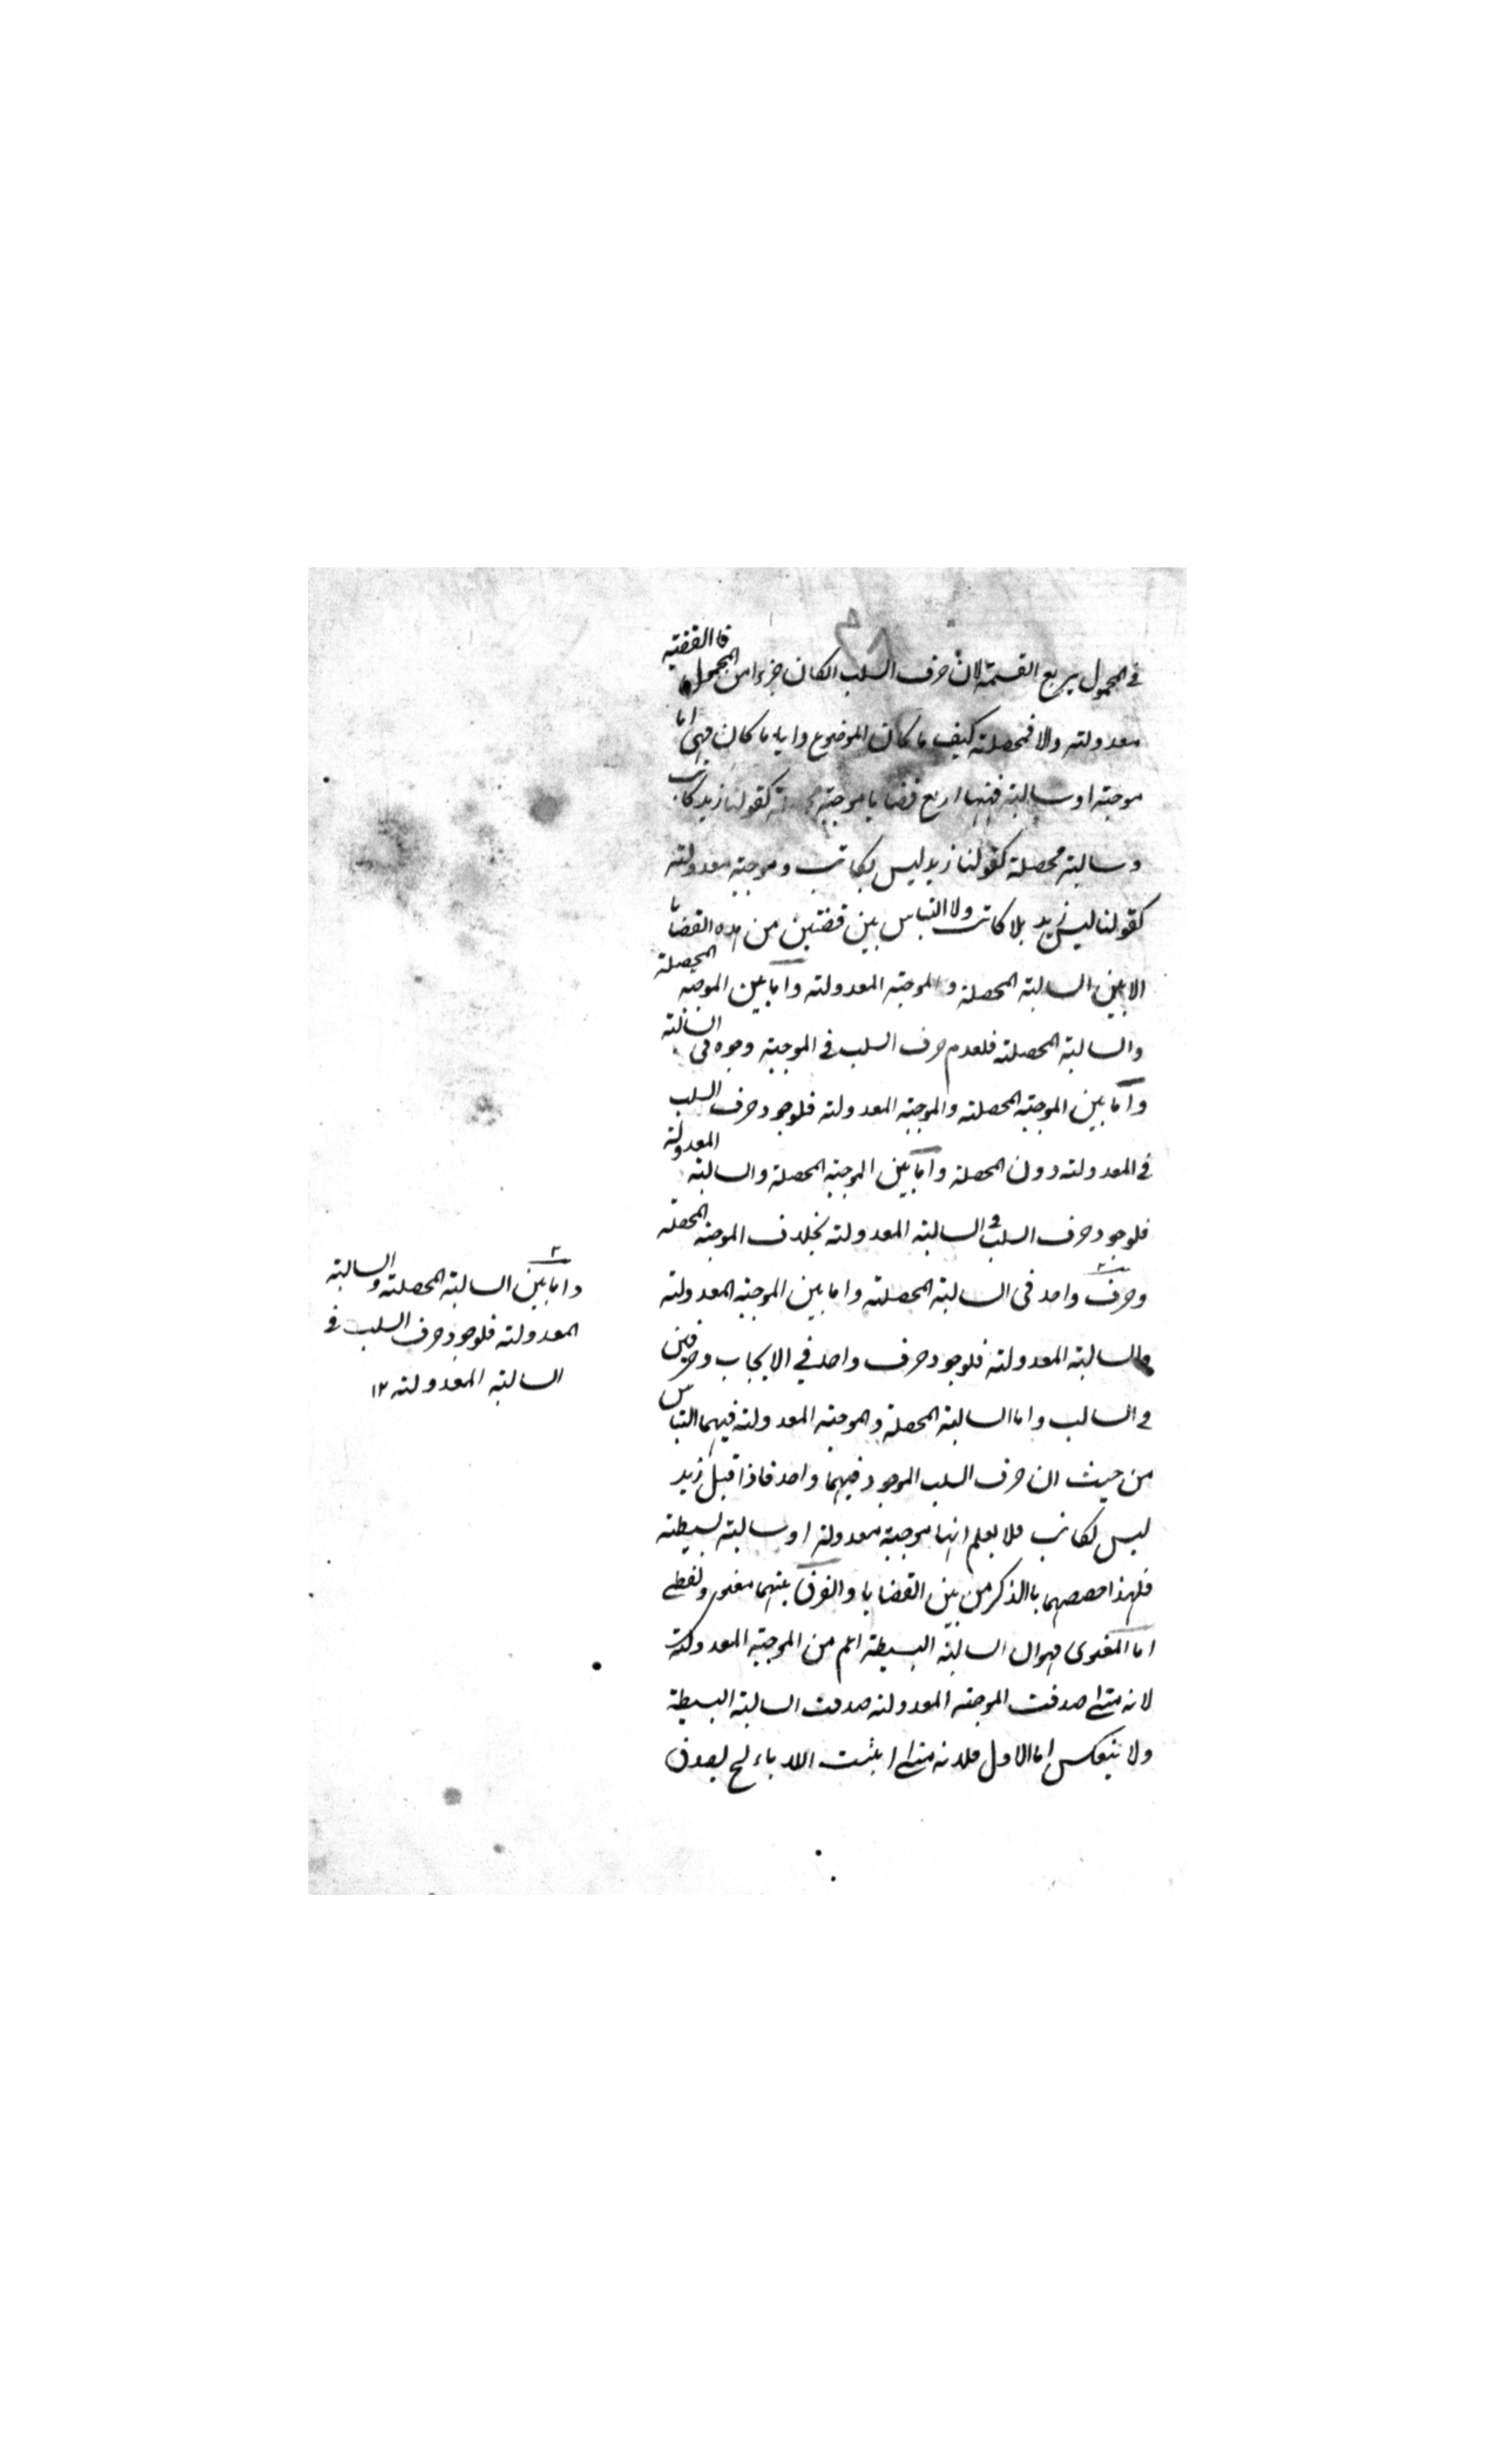 ٣٨
في المحمول يربع القسمة لان حرف السلب انكان جزءا من المحمول فالقضية
معدولته والا فمحصلته كيف ما كان الموضوع واياما كان فهي اما
موجبته او سالبته فههنا اربع قضايا موجبته كقولنا زيد كاتب
وسالبته محصلة كقولنا زيد ليس بكاتب وموجبته معدولته
كقولنا ليس زيد بلا كاتب ولا التباس بين قضتين من هذه القضايا
الا بين السالبته المحصلة والموجبته المعدولته واما بين الموجبه المحصلة
والسالبته المحصلته فلعدم حرف السلب في الموجبته وجوه في السالبته
واما بين الموجبته المحصلته والموجبته المعدولته فلوجود حرف السلب
في المعدولته دون المحصلة واما بين الموجبته المحصلة والسالبته المعدولة
فلوجود حرف السلب في السالبته المعدولته بخلاف الموجبته المحصلة
وحرف واحد في السالبته المحصلته واما بين الموجبته المعدولته
والسالبته المعدولته فلوجود حرف واحد في الايجاب وحرفين
في السالب واما السالبته المحصلة والموجبته المعدولته فبهما التباس
من حيث ان حرف السلب الموجود فيهما واحد فاذا قيل زيد
ليس بكاتب فلا يعلم انها موجبته معدولته او سالبته بسيطته
فلهذا خصصهما باالذكر من بين القضايا والفرق بينهما معنوي ولفظي
اما المعنوى فهو ان السالبته البسيطته اعم من الموجبته المعدولته
لانه متى صدقت الموجبته المعدولته صدقت السالبته البسيطة
ولا ينعكس اما الاول فلانه متى اثبت اللاباء لج يصدق
واما بين السالبته المحصلته والسالبته
المعدولته فلوجود حرف السلب في
السالبته المعدولته ١٢